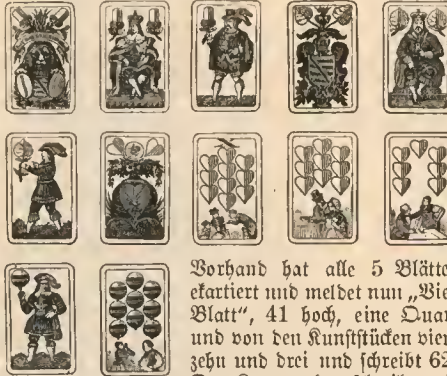 Vorhand hat alle 5 Blätte
ekartiert und meldet nun „Vie
Blatt“, 41 hoch, eine Quar
und von den Kunststücken vier
zehn und drei und schreibt 62